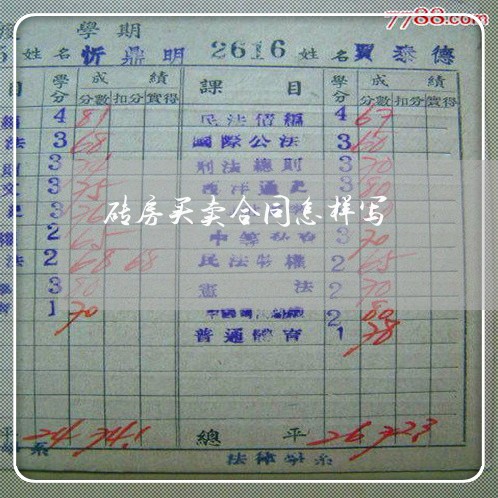 7788.com
學期
姓名 忻鼎明 2616 姓名 賈泰德
目 學分 成績 課目 學分 成績
分數 扣分 實得 分數 扣分 實得
4 81 民法債編 4 67
法 3 68 國際公法 3 60
3 刑法總則 3 70
3 75 西洋通史 3 80
3
砖房买卖合同怎样写
2 65 3 70
法 2 68 68 民法物權 2 65
3 80 憲法 2 70
1 70 2 80
普通體育 1 78
平 24 74.1 總平 26 72.3
系 法律學系